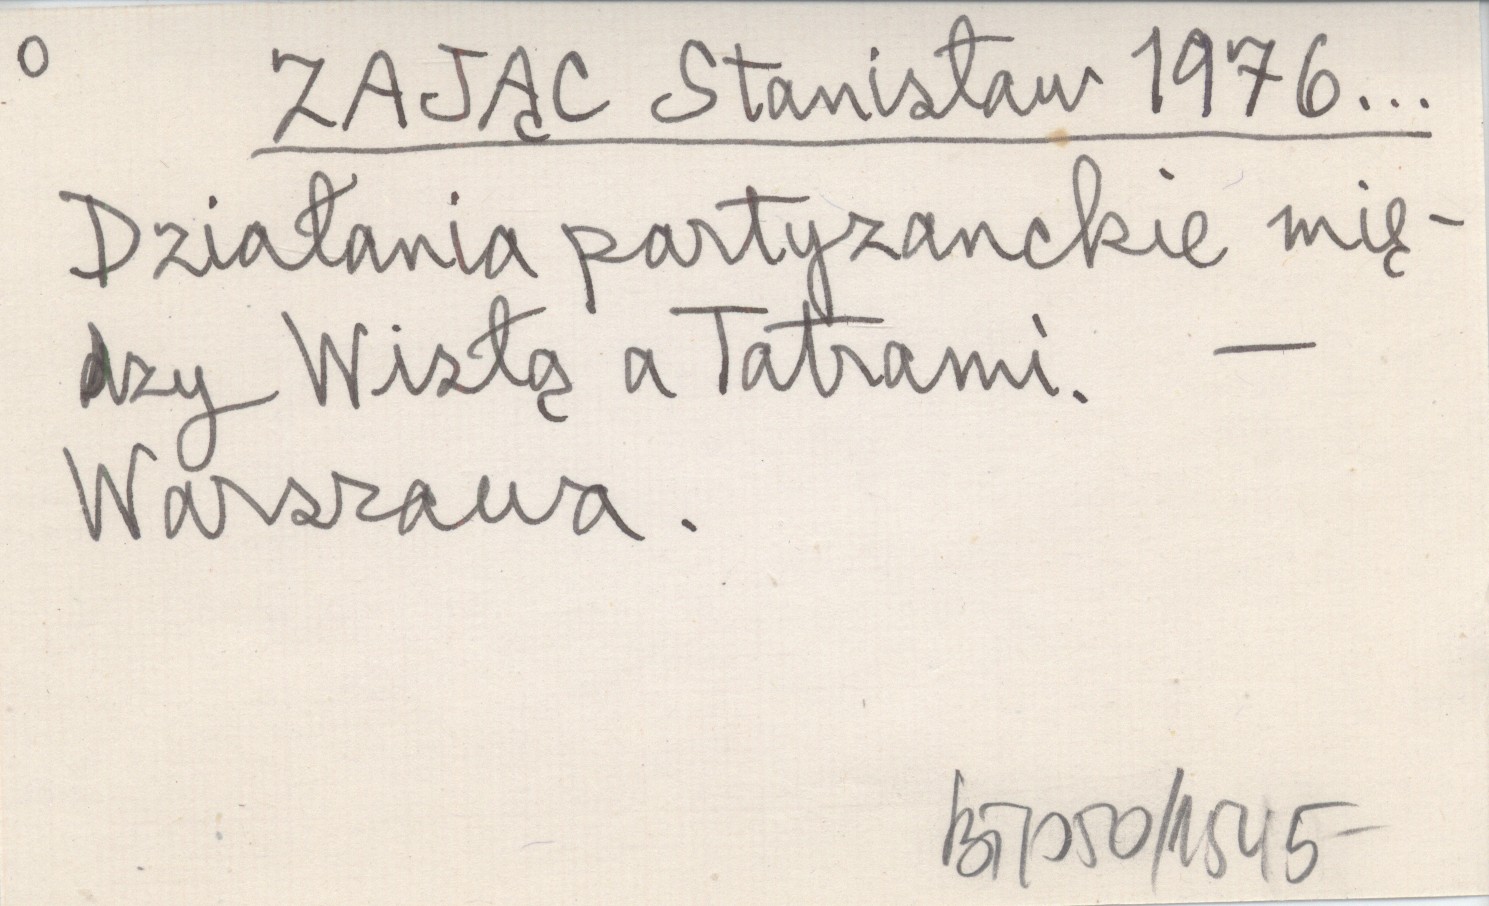 o
ZAJĄC Stanisław 1976...
Działania partyzanckie mię-
dzy Wisłą a Tatrami. —
Warszawa.